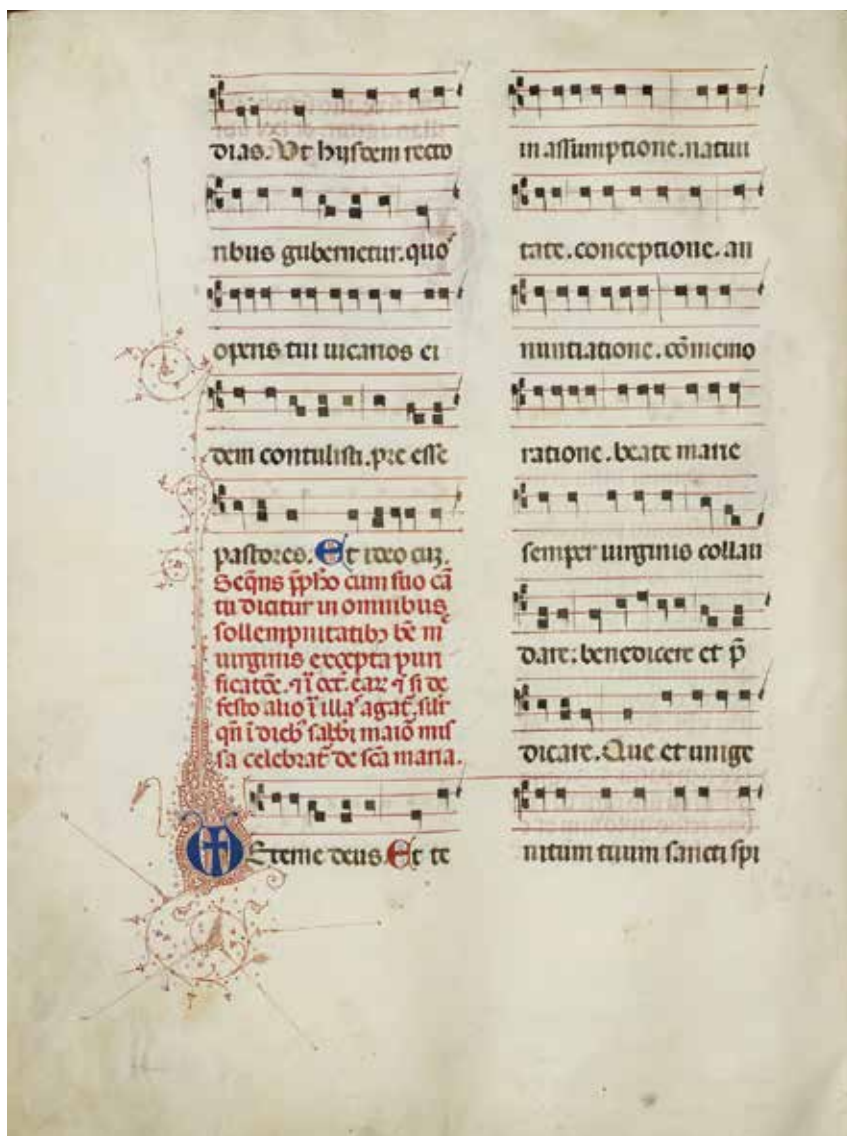 dias. Ut hijsdem recto
ribus gubernetur. quos
operis tui uicarios ei
dem contulisti. pre esse
pastores. Et ideo cuz.
Seqñs p̃pho cum suo cã
tu dicitur in omnibus
sollempnitatibꝫ bẽ m̃
uirginis excepta puri
ficatõe. ⁊ ĩ oct. eaꝝ ⁊ si de
festo alio ĩ illa agat̃. silr
qñ ĩ dieb' sabbi maiõ mis
sa celebrat̃ de scã maria.
Eterne deus. Et te
in assumptione. natiui
tate. conceptione. an
nuntiatione. cõmemo
ratione. beate marie
semper uirginis collau
dare: benedicere et p̃
dicare. Que et unige
nitum tuum sancti spi